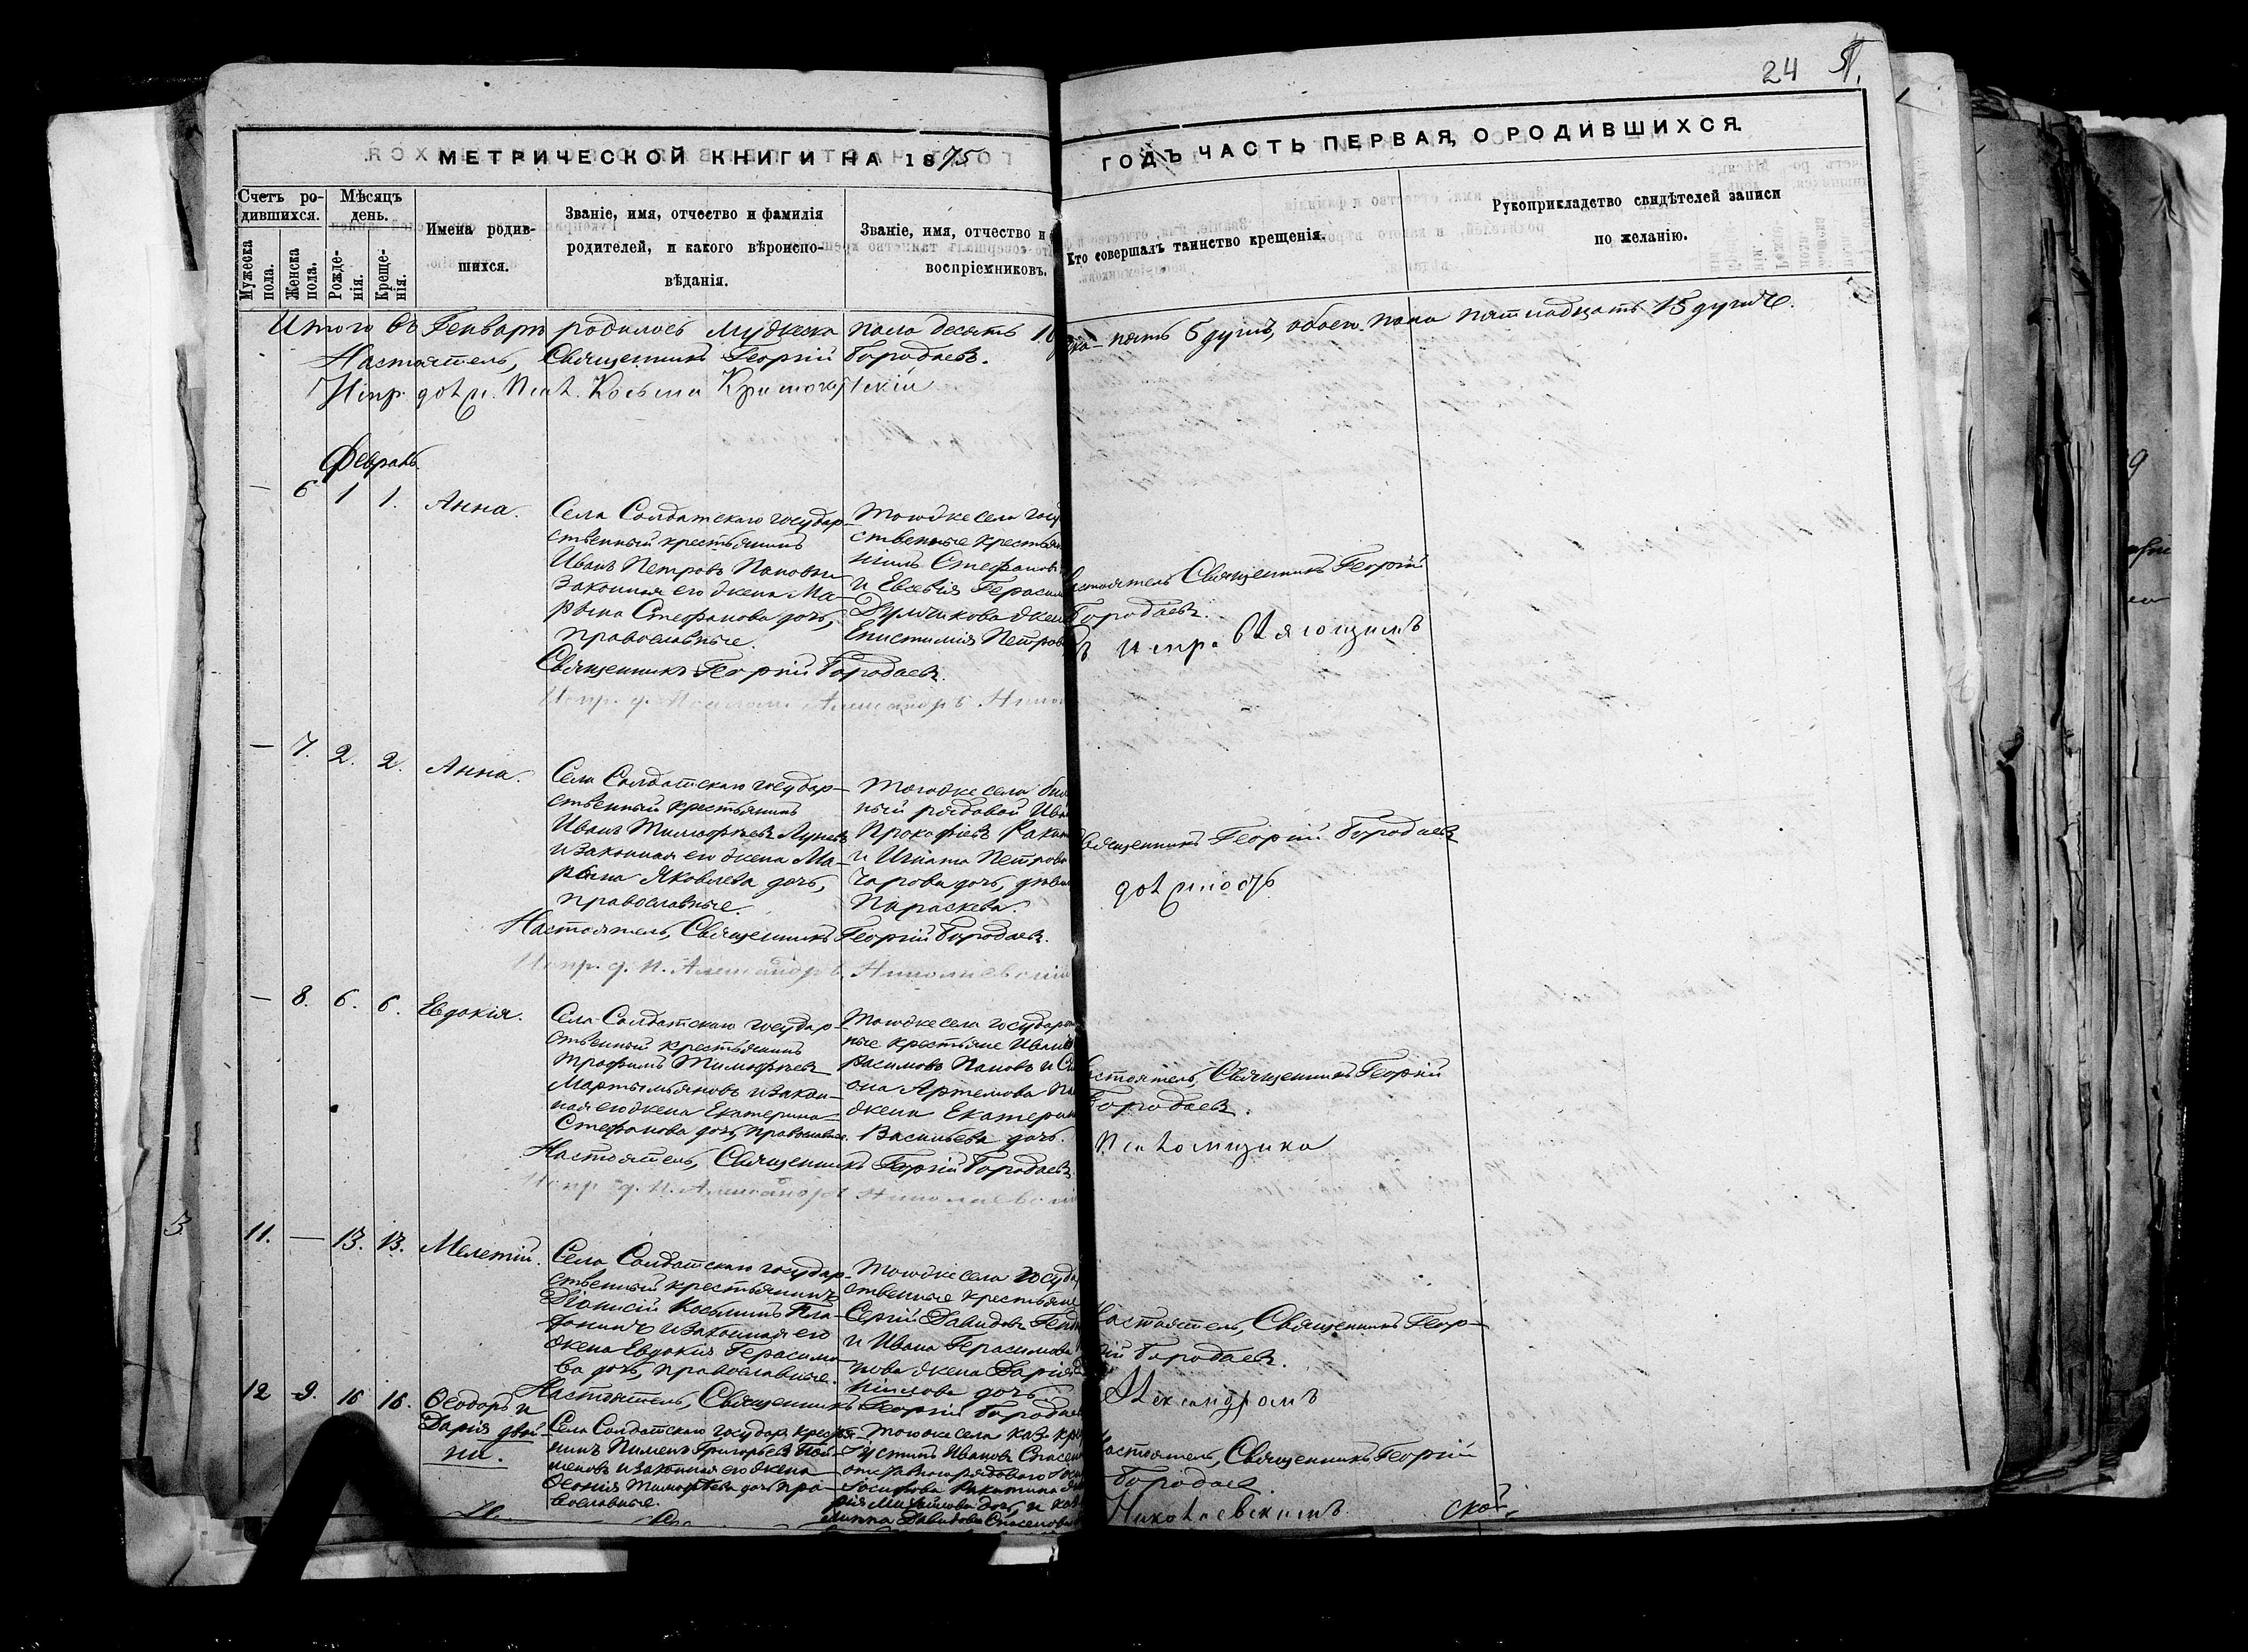 24
МЕТРИЧЕСКОЙ КНИГИ НА 1875
ГОДЪ ЧАСТЬ ПЕРВАЯ, О РОДИВШИХСЯ.
Счетъ ро-
дившихся.
Мужеска
пола.
Женска
пола.
Мѣсяцъ
день.
Рожде-
нія.
Креще-
нія.
Имена родив-
шихся.
Званіе, имя, отчество и фамилія
родителей, и какого вѣроиспо-
вѣданія.
Званіе, имя, отчество и
воспріемниковъ.
Кто совершалъ таинство крещенія.
Рукоприкладство свидѣтелей записи
по желанію.
Итого въ Генварѣ родилось мужеска пола десять 10
пять 5 душъ, обоего пола пятнадцать 15 душъ.
Настоятель, Священникъ Георгій Бородаевъ.
Февраль.
— 6 1 1. Анна.
Села Солдатскаго государ-
ственный крестьянинъ
Иванъ Петровъ Поповъ и
законная его жена Ма-
рина Стефанова дочь,
православные.
Тогоже села госу
ственные крестьян
и Евсевія Герасим
жен
Епистимія Петров
Настоятель Священникъ Георгій
Бородаевъ.
Испр. вляющимъ
Священникъ Георгій Бородаевъ.
Испр. д. Псалом. Александръ Никол
— 7. 2. 2. Анна.
Села Солдатскаго государ-
ственный крестьянинъ
Иванъ Тимофѣевъ Луневъ
и законная его жена Ма-
рина Яковлева дочь,
православные.
Тогоже села
ный рядовой Ив
Прокофіевъ Ракит
и Игната Петрова
дочь, дѣви
Параскева.
Священникъ Георгій Бородаевъ
должность
Настоятель, Священникъ Георгій Бородаевъ.
Испр. д. П. Александръ Николаевскій
— 8. 6. 6. Евдокія.
Села Солдатскаго государ-
ственный крестьянинъ
Трофимъ Тимофѣевъ
Мартемьяновъ и закон-
ная его жена Екатерина
Стефанова дочь, православные.
Тогоже села государ
ные крестьяне Иван
расимовъ Поповъ и
она Артемова По
жена Екатерин
Васильева дочь.
стоятель, Священникъ Георгій
Бородаевъ.
Псаломщика
Настоятель, Священникъ Георгій Бородаевъ.
Испр. д. П. Александръ Николаевскій
11. — 13. 13. Мелетій.
Села Солдатскаго государ-
ственный крестьянинъ
Діонисій Косьминъ
и законная его
жена Евдокія Герасимо
ва дочь, православные.
Тогоже села госуда
ственные крестьяне
Сергій Давидовъ
и Ивана Герасимова
пова жена Дарія
дочь.
Настоятель, Священникъ Геор-
гій Бородаевъ.
Александромъ
Настоятель, Священникъ Георгій Бородаев
12 9. 16 16. Ѳеодоръ и
Дарія двой-
ни.
Села Солдатскаго государ. крестья-
нинъ Пименъ Григорьевъ
и законная его жена
Тимофѣева дочь пра-
вославные.
Тогоже села каз. кре
Іустинъ Ивановъ
рядоваго
Іосифова Ракитина
рія Михайлова дочь, и
Давидова
Настоятель, Священникъ Георгій
Бородаев.
Николаевскимъ